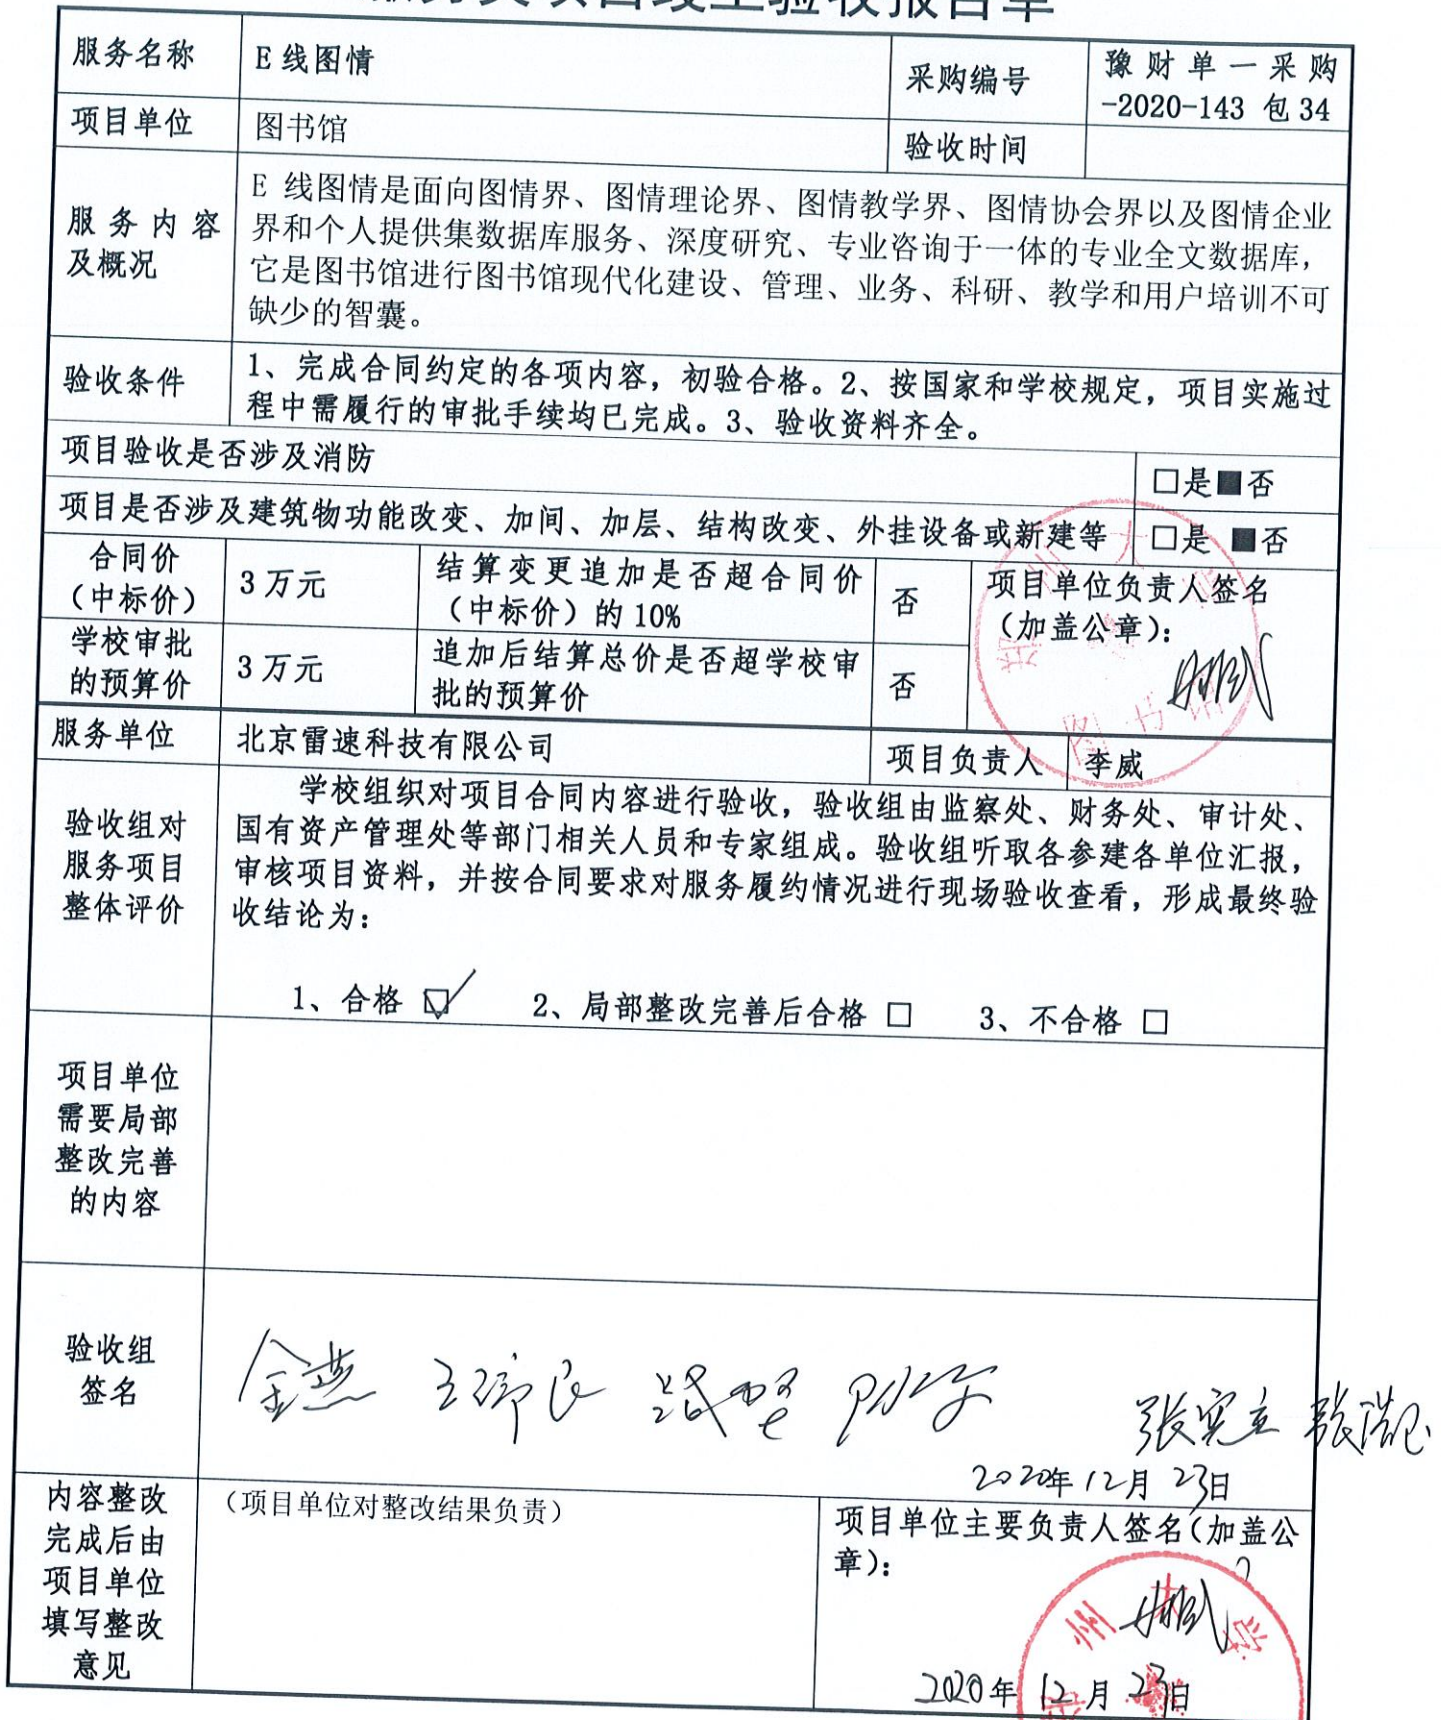 服务类项目竣工验收报告单
服务名称
E 线图情
采购编号
豫财单一采购
-2020-143 包 34
项目单位
图书馆
验收时间
服务内容
及概况
E 线图情是面向图情界、图情理论界、图情教学界、图情协会界以及图情企业
界和个人提供集数据库服务、深度研究、专业咨询于一体的专业全文数据库，
它是图书馆进行图书馆现代化建设、管理、业务、科研、教学和用户培训不可
缺少的智囊。
验收条件
1、完成合同约定的各项内容，初验合格。2、按国家和学校规定，项目实施过
程中需履行的审批手续均已完成。3、验收资料齐全。
项目验收是否涉及消防
□是■否
项目是否涉及建筑物功能改变、加间、加层、结构改变、外挂设备或新建等
□是 ■否
合同价
（中标价）
3 万元
结算变更追加是否超合同价
（中标价）的 10%
否
项目单位负责人签名
（加盖公章）：
学校审批
的预算价
3 万元
追加后结算总价是否超学校审
批的预算价
否
服务单位
北京雷速科技有限公司
项目负责人
李威
验收组对
服务项目
整体评价
学校组织对项目合同内容进行验收，验收组由监察处、财务处、审计处、
国有资产管理处等部门相关人员和专家组成。验收组听取各参建各单位汇报，
审核项目资料，并按合同要求对服务履约情况进行现场验收查看，形成最终验
收结论为：
1、合格 ☑ 2、局部整改完善后合格 □ 3、不合格 □
项目单位
需要局部
整改完善
的内容
验收组
签名
金燕
张宪立
2020年12月23日
内容整改
完成后由
项目单位
填写整改
意见
（项目单位对整改结果负责）
项目单位主要负责人签名（加盖公
章）：
2020年12月23日